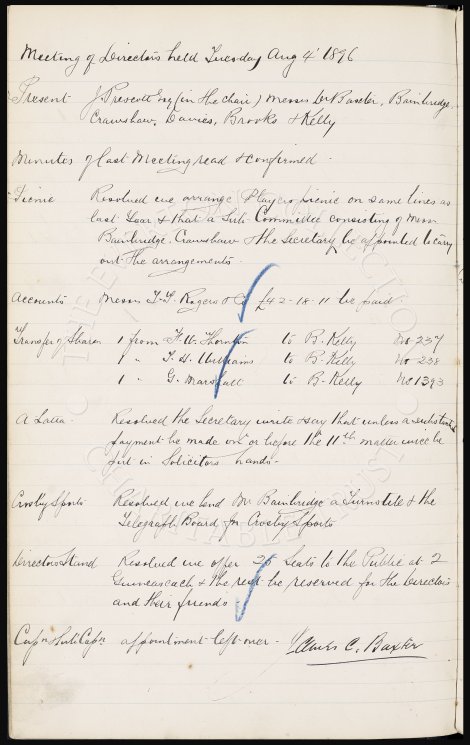 Meeting of Directors held Tuesday Aug 4' 1896
Present J. Prescott Esq (in the chair) Messrs Dr Baxter, Bainbridge,
Crawshaw, Davies, Brooks & Kelly
Minutes of last Meeting read & confirmed.
Picnic Resolved we arrange Players picnic on same lines as
last Year & that a Sub Committee consisting of Messrs
Bainbridge, Crawshaw & the Secretary be appointed to carry
out the arrangements.
Accounts Messrs T. Rogers & Co £42-18-11 be paid.
Transfer of Shares 1 from F. W. Thornton to B. Kelly No 237
1 " T. H. Williams to B. Kelly No 238
1 " G. Marshall to B. Kelly No 1393
A Latta. Resolved the Secretary write & say that unless a substantial
payment be made on or before the 11th matter will be
put in Solicitors hands.
Crosby Sports Resolved we lend Mr Bainbridge a Turnstile & the
Telegraph Board for Crosby Sports
Directors Stand Resolved we offer 25 Seats to the Public at 2
Guineas each & the rest be reserved for the Directors
and their friends
Capn & Sub Capn appointment left over. James C. Baxter